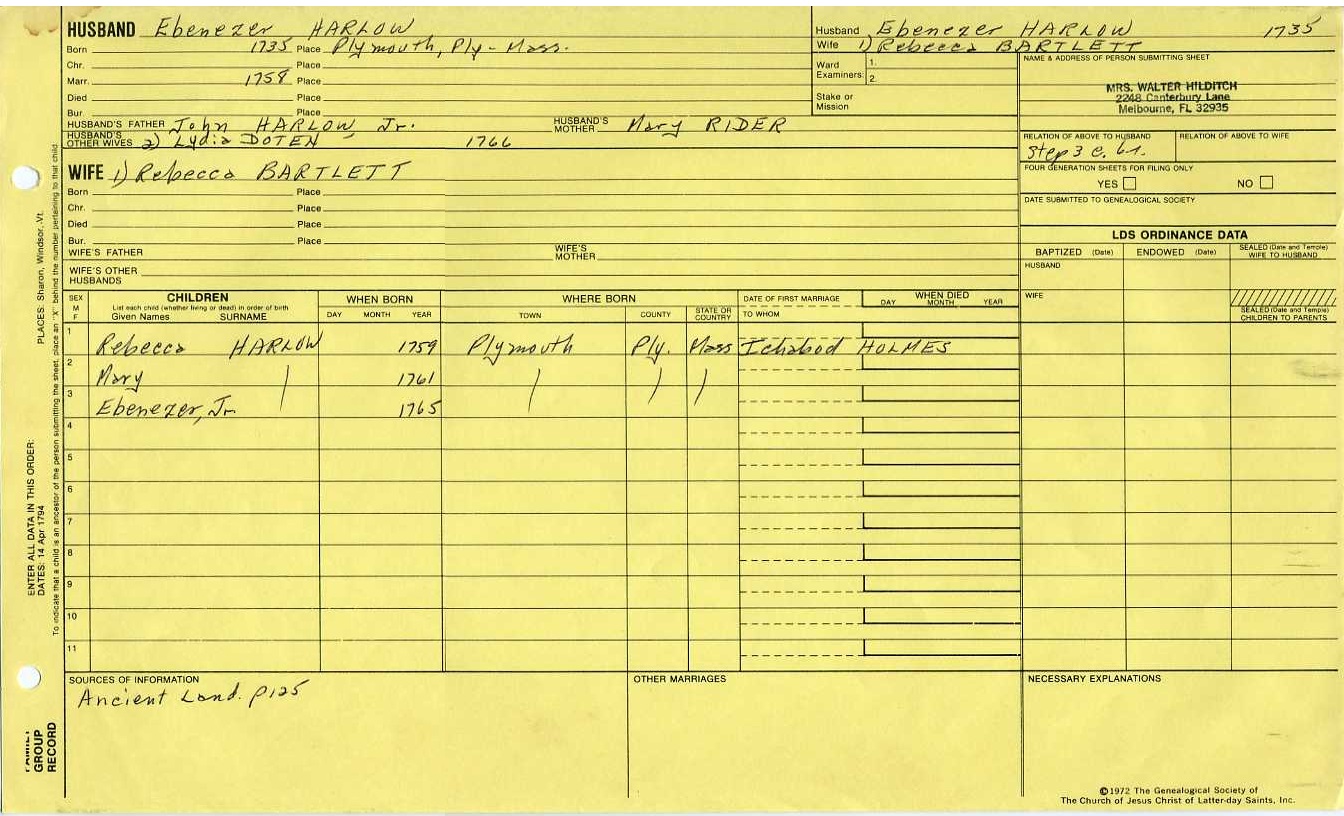 HUSBAND Ebenezer HARLOW
Born 1735 Place Plymouth, Ply- Mass.
Chr. Place
Marr. 1758 Place
Died Place
Bur. Place
HUSBAND'S FATHER John HARLOW Jr. HUSBAND'S MOTHER Mary RIDER
HUSBAND'S OTHER WIVES 2) Lydia DOTEN 1766
Husband Ebenezer HARLOW 1735
Wife 1) Rebecca BARTLETT
Ward Examiners: 1.
2.
Stake or Mission
NAME & ADDRESS OF PERSON SUBMITTING SHEET
MRS. WALTER HILDITCH
2248 Canterbury Lane
Melbourne, FL 32935
RELATION OF ABOVE TO HUSBAND RELATION OF ABOVE TO WIFE
Step 3 c.
FOUR GENERATION SHEETS FOR FILING ONLY
YES NO
DATE SUBMITTED TO GENEALOGICAL SOCIETY
WIFE 1) Rebecca BARTLETT
Born Place
Chr. Place
Died Place
Bur. Place
WIFE'S FATHER WIFE'S MOTHER
WIFE'S OTHER HUSBANDS
LDS ORDINANCE DATA
BAPTIZED (Date) ENDOWED (Date) SEALED (Date and Temple) WIFE TO HUSBAND
HUSBAND
WIFE
SEALED (Date and Temple) CHILDREN TO PARENTS
SEX M F
CHILDREN
List each child (whether living or dead) in order of birth
Given Names SURNAME
WHEN BORN
DAY MONTH YEAR
WHERE BORN
TOWN COUNTY STATE OR COUNTRY
DATE OF FIRST MARRIAGE
TO WHOM
WHEN DIED
DAY MONTH YEAR
1 Rebecca HARLOW 1759 Plymouth Ply. Mass Ichabod HOLMES
2 Mary 1761
3 Ebenezer, Jr. 1765
4
5
6
7
8
9
10
11
SOURCES OF INFORMATION
Ancient Land. p125
OTHER MARRIAGES
NECESSARY EXPLANATIONS
©1972 The Genealogical Society of
The Church of Jesus Christ of Latter-day Saints, Inc.
PLACES: Sharon, Windsor, Vt.
ENTER ALL DATA IN THIS ORDER:
DATES: 14 Apr 1794
To indicate that a child is an ancestor of the person submitting the sheet, place an "X" behind the number pertaining to that child.
FAMILY
GROUP
RECORD